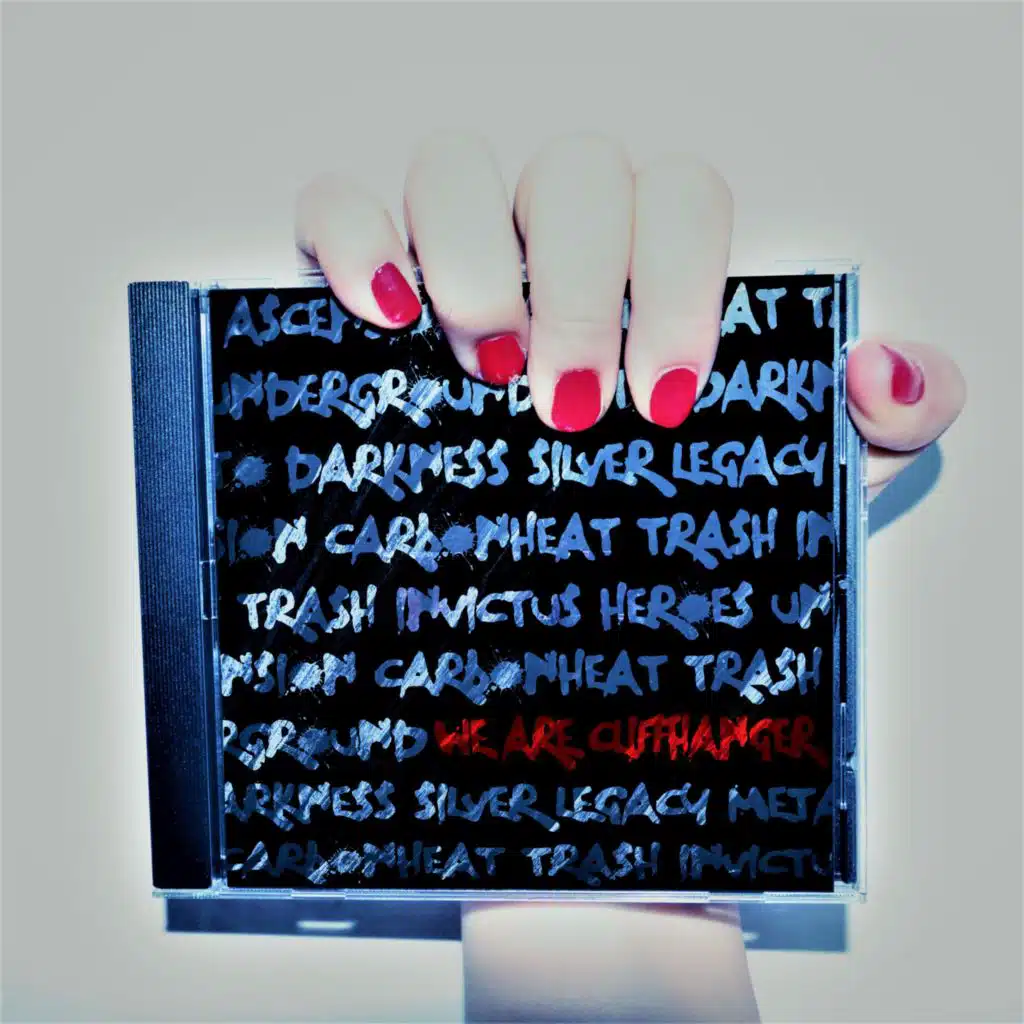 ASCEN EAT T
UNDERGROUND DARKN
TO DARKNESS SILVER LEGACY
SION CARBONHEAT TRASH IN
TRASH INVICTUS HEROES UN
NSION CARBONHEAT TRASH
RGROUND WE ARE CLIFFHANGER
ARKNESS SILVER LEGACY META
CARBONHEAT TRASH INVICTU